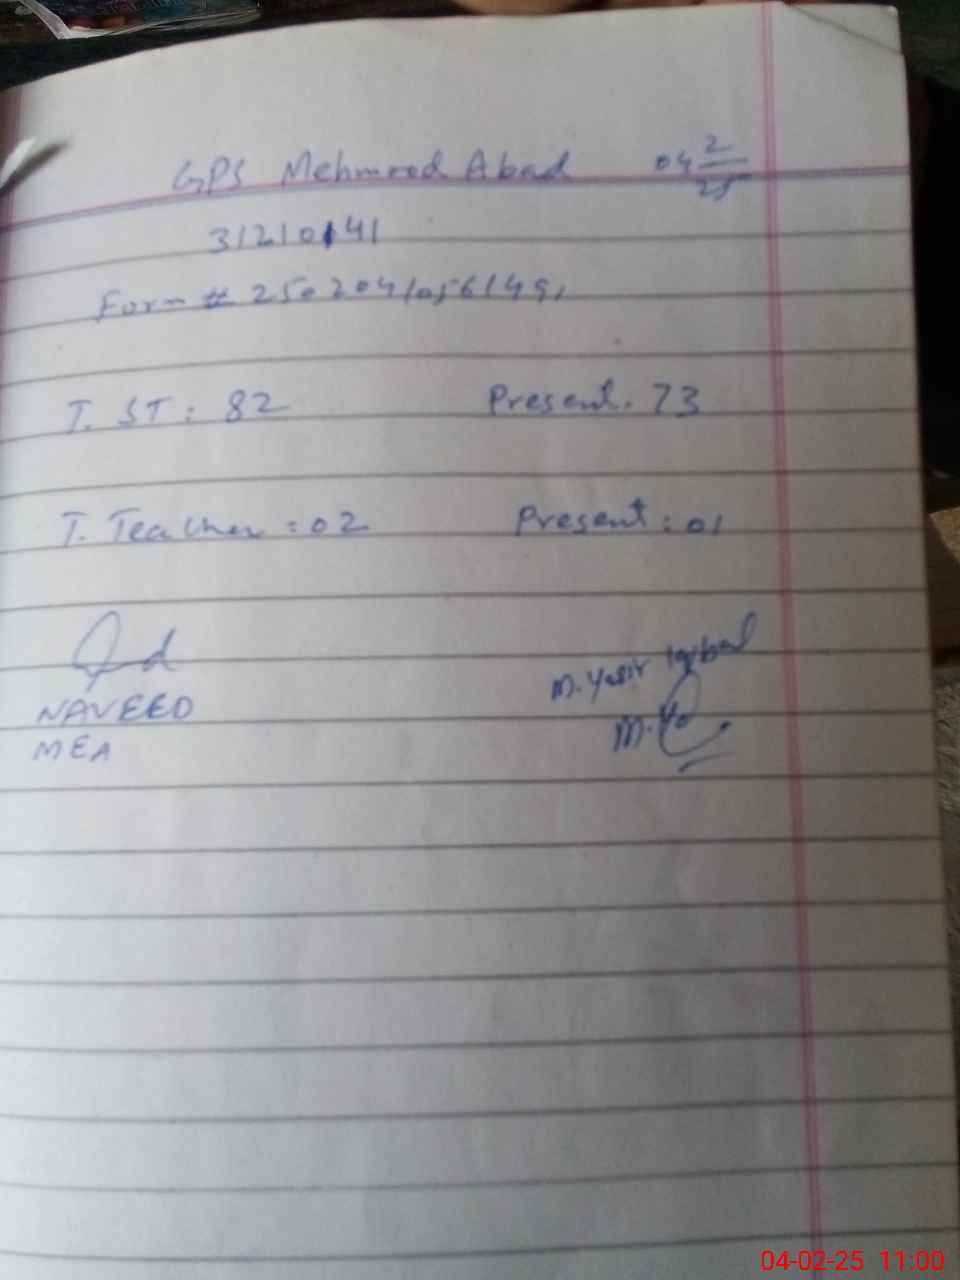 GPS Mehmood Abad 04 2/25
31210141
Form # 25020410561491
T. ST : 82 Present. 73
T. Teacher : 02 Present : 01
NAVEED
MEA
M. Yasir Iqbal
04-02-25 11:00